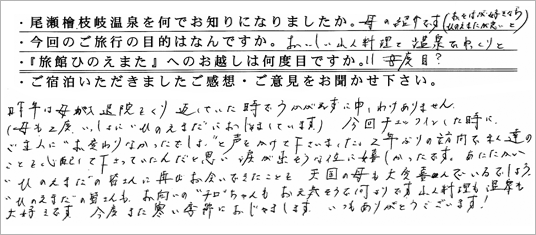 ・尾瀬檜枝岐温泉を何でお知りになりましたか。母の紹介です(おそばが好きなら ひのえまたが良いと)
・今回のご旅行の目的はなんですか。おいしい山人料理と温泉でゆっくりと
・『旅館ひのえまた』へのお越しは何度目ですか。11度目?
・ご宿泊いただきましたご感想・ご意見をお聞かせ下さい。
昨年は母が入退院をくり返していた時でうかがえずに申しわけありません。
(母も2度、いっしょに"ひのえまた"におじゃましています) 今回チェックインした時に
ご主人に"お変わりなかったでしょ"と声をかけて下さいました。2年ぶりの訪問で私達の
ことを心配して下さっていたんだと思い涙が出そうな位に嬉しかったです。あたたかい
"ひのえまた"の皆さんに再びお会いできたことを天国の母も大変喜んでいるでしょう。
"ひのえまた"の皆さんも、お向いの"チロ"ちゃんもお元気そうで何よりです。山人料理も温泉も
大好きです 今度また寒い季節におじゃまします いつもありがとうございます!